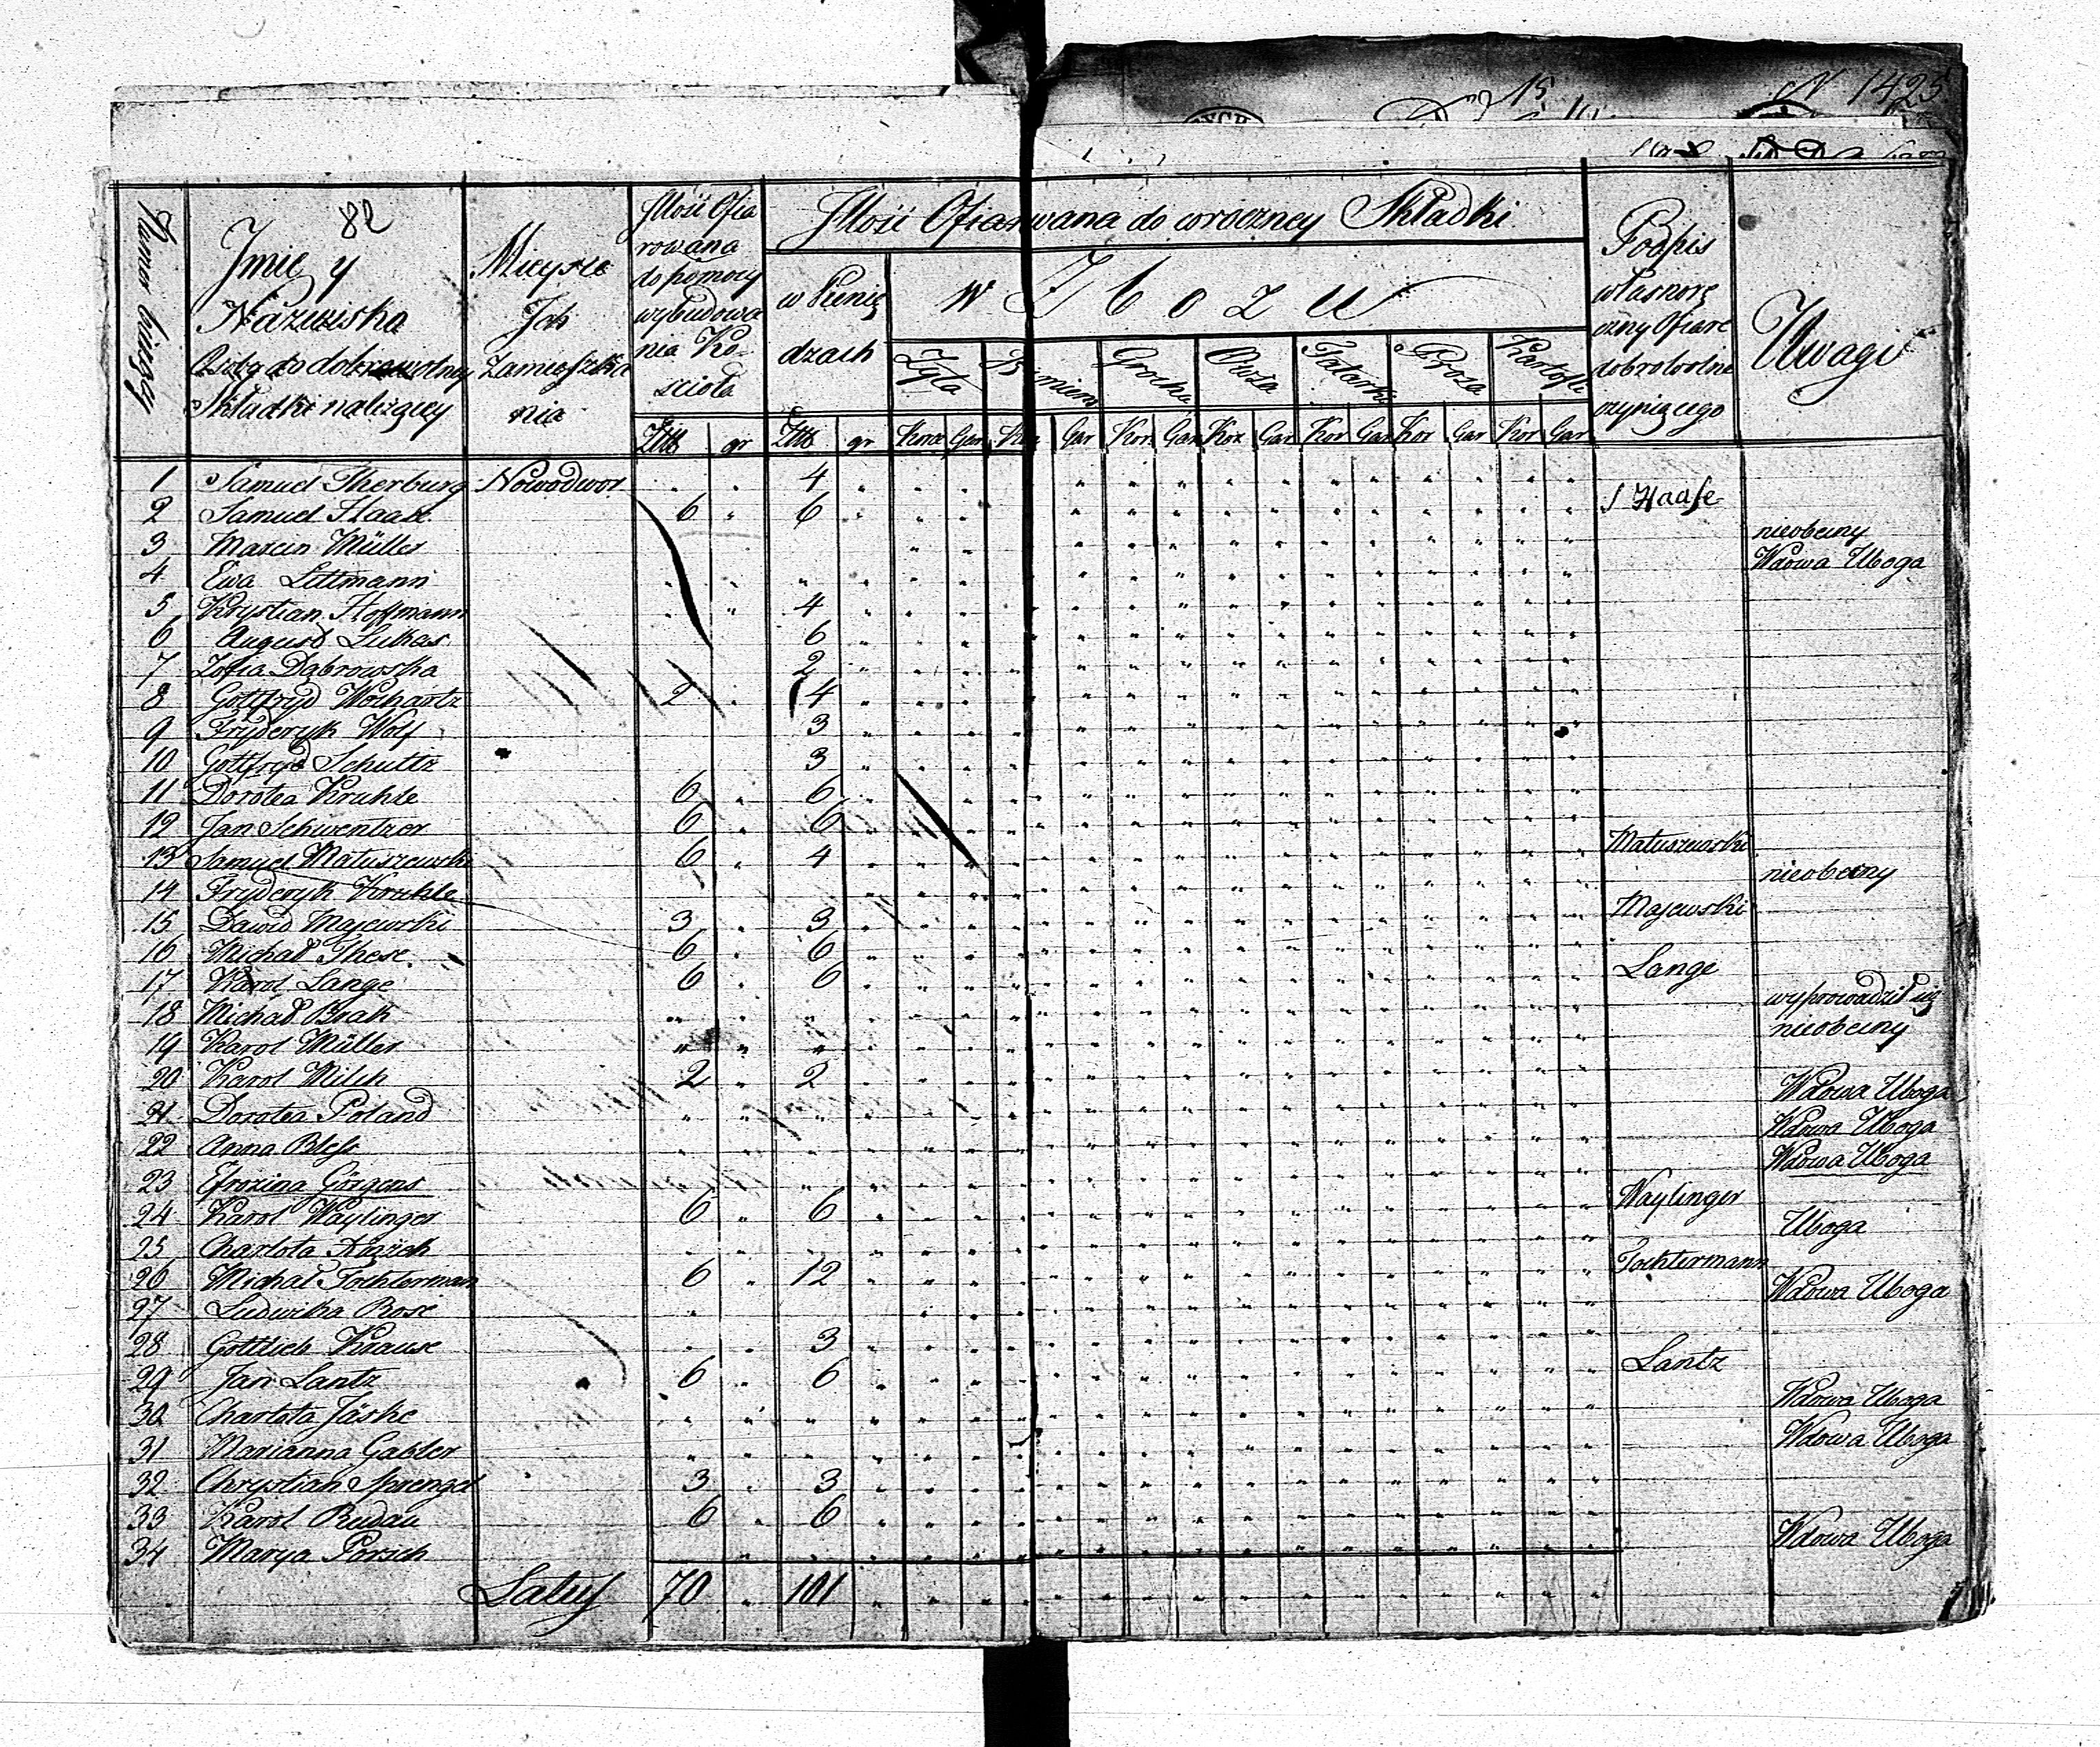 N 1425
15
82
Numer bieżący
Imie y Nazwiska Osób do dobrowolney Składki należący
Mieysce Ich Zamieszkania
Jlość Ofiarowana do pomocy wybudowania Kościoła
Jlość Ofiarowana do coroczney Składki
w Pieniędzach
w Zbożu
Żyta Jęczmienia Grochu Owsa Tatarki Prosa Kartofli
Podpis własnoręczny Ofiarę dobrowolnie czyniącego
Uwagi
Złł gr Złł gr Korce Gar Kor Gar Kor Gar Kor Gar Kor Gar Kor Gar Kor Gar
1 Samuel Therburg Nowodwor 4
2 Samuel Haase 6 6 S Haase
3 Marcin Müller nieobecny
4 Ewa Littmann Wdowa Uboga
5 Krystian Hoffmann 4
6 August Lukas 6
7 Zofia Dąbrowska 2
8 Gottfryd Wolhartz 2 4
9 Fryderyk Wolf 3
10 Gottfryd Schultz 3
11 Dorotea Kruhle 6 6
12 Jan Schwentzer 6 6
13 Samuel Matuszewski 6 4 Matuszewski
14 Fryderyk Kruhle nieobecny
15 Dawid Majewski 3 3 Majewski
16 Michał These 6 6
17 Karol Lange 6 6 Lange
18 Michał Brak wyprowadził się
19 Karol Müller nieobecny
20 Karol Milch 2 2
21 Dorotea Poland Wdowa Uboga
22 Anna Wdowa Uboga
23 Efrozina Görgens Wdowa Uboga
24 Karol Waylinger 6 6 Waylinger
25 Charlota Uboga
26 Michał Tochterman 6 12 Tochtermann
27 Ludwika Rose Wdowa Uboga
28 Gottlieb Krause 3
29 Jan Lantz 6 6 Lantz
30 Charlota Jäske Wdowa Uboga
31 Marianna Gabler Wdowa Uboga
32 Chrystian Sprengel 3 3
33 Karol Budau 6 6
34 Marya Porsch Wdowa Uboga
Latus 70 101